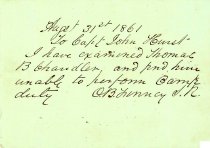 Augst 31st 1861
To Capt John Hurst
I have examined Thomas
B Chandler, and find him
unable to perform Camp
duty